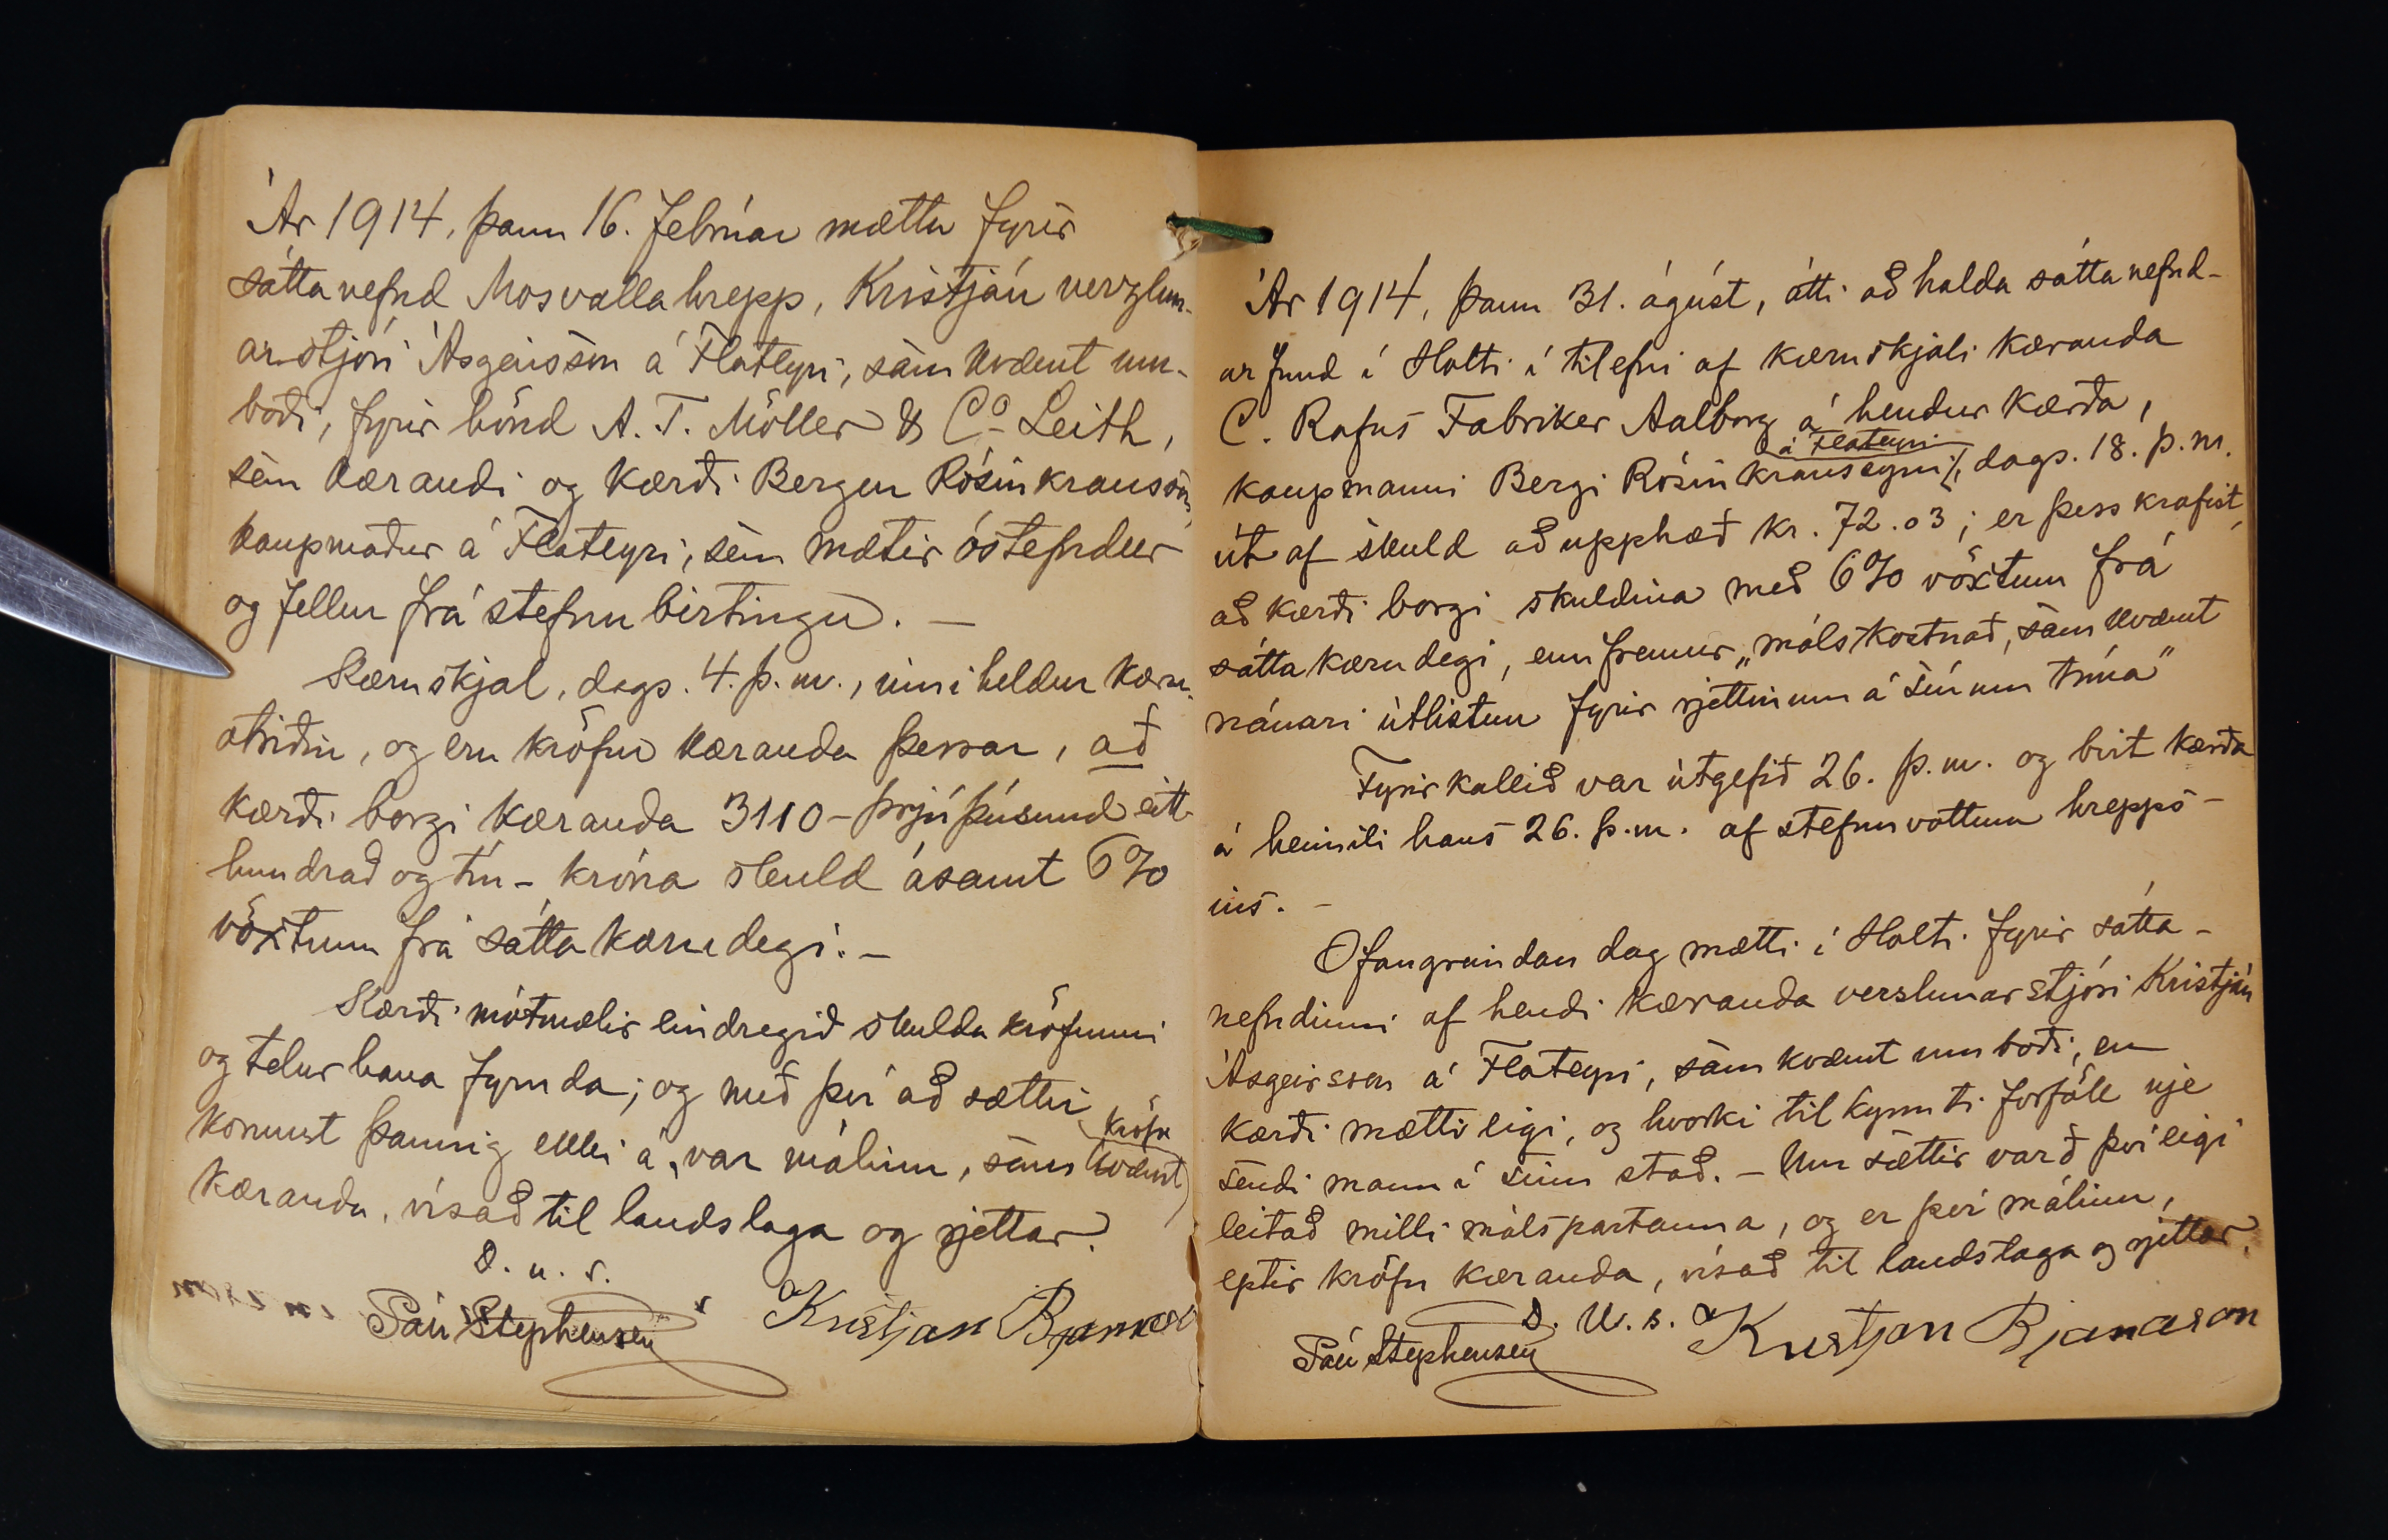 Ár 1914, þann 16. febrúar mættu fyrir
sáttanefnd Mosvallahrepp, Kristján verzlun-
arstjóri Ásgeirsson á Flateyri, samkvæmt um-
boði, fyrir hönd A. T. Möller & Co Leith,
sem kærandi og kærði Bergur Rósinkransson,
kaupmaður á Flateyri, sem mætir óstefndur
og fellur frá stefnubirtingu. –
Kæruskjal, dags. 4. þ. m., inniheldur kæru-
atriðin, og eru kröfur kæranda þessar, að
kærði borgi kæranda 3110 – þrjú þúsund eitt
hundrað og tíu – króna skuld ásamt 6%
vöxtum frá sáttakærudegi. –
Kærði mótmælir eindregið skuldakröfunni
og telur hana fyrnda; og með því að sættir
komust þannig ekki á, var málinu, samkvæmt kröfu
kæranda, vísað til landslaga og rjettar.
D. u. s.
Páll Stephensen Kristján Bjarnason
Ár 1914, þann 31. ágúst, átti að halda sáttanefnd-
arfund í Holti í tilefni af kæruskjali kæranda
C. Rafns Fabriker Aalborg á hendur kærða,
kaupmanni Bergi Rósinkranssyni á Flateyri, dags. 18. þ. m.
út af skuld að upphæð kr. 72.03; er þess krafist,
að kærði borgi skuldina með 6% vöxtum frá
sáttakærudegi, ennfremur „málskostnað, samkvæmt
nánari útlistun fyrir rjettinum á sínum tíma"
Fyrirkallið var útgefið 26. þ. m. og birt kærða
á heimili hans 26. þ. m. af stefnuvottum hrepps-
ins. –
Ofangreindan dag mætti í Holti fyrir sátta-
nefndinni af hendi kæranda verslunarstjóri Kristján
Ásgeirsson á Flateyri, samkvæmt umboði, en
kærði mætti eigi, og hvorki tilkynnti forföll nje
sendi mann í sinn stað. – Um sættir varð því eigi
leitað milli málspartanna, og er því málinu,
eptir kröfu kæranda, vísað til landslaga og rjettar.
D. U. s.
Páll Stephensen Kristján Bjarnason